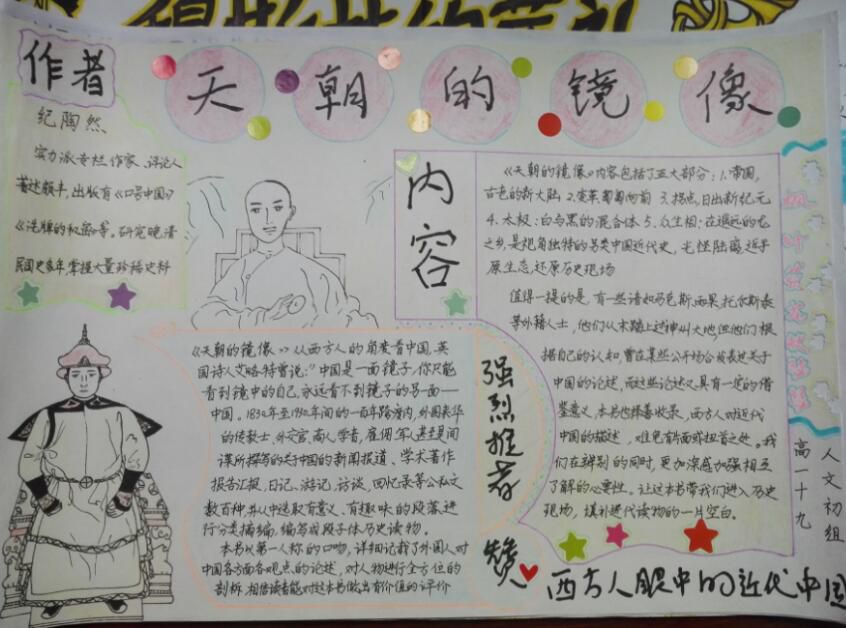 天朝的镜像
作者
纪陶然
实力派专栏作家、评论人
著述颇丰,出版有《口号中国》
《洗牌的秘密》等。研究晚清
民国史多年,掌握大量珍稀史料
内容
《天朝的镜像》内容包括了五大部分:1.帝国,
古老的新大陆 2.变革匍匐向前 3.拐点,日出新纪元
4.太极:白与黑的混合体 5.众生相:在遥远的龙
之乡,是视角独特的另类中国近代史,光怪陆离,近乎
原生态,还原历史现场
值得一提的是,有一些诸如马克斯,雨果,托尔斯泰
等外籍人士,他们从未踏上过神州大地,但他们根
据自己的认知,曾在某些公开场合发表过关于
中国的论述,而这些论述又具有一定的借
鉴意义,本书也择善收录,西方人对近代
中国的描述,难免有片面或扭曲之处。我
们在辨别的同时,更加深感加强相互
了解的必要性。让这本书带我们进入历史
现场,填补近代读物的一片空白。
《天朝的镜像》从西方人的角度看中国,英
国诗人艾略特曾说:"中国是一面镜子,你只能
看到镜中的自己,永远看不到镜子的另一面——
中国。1832年至1932年间的一百年跨度内,外国来华
的传教士,外交官,商人,学者,雇佣军,甚至是间
谍所撰写的关于中国的新闻报道、学术著作
报告汇报,日记、游记,访谈,回忆录等公私文
数百种,并从中选取有意义、有趣味的段落进
行分类摘编,编写成段子体历史读物。
本书以第一人称的口吻,详细记载了外国人对
中国各方面各观点的论述,对人物进行全方位的
剖析,相信读者能对这本书做出有价值的评价
强烈推荐
赞
高一十九
人文初组
西方人眼中的近代中国